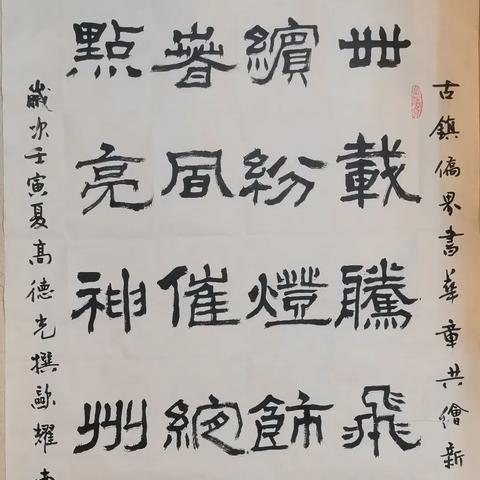 古鎮僑界書華章共繪新
卅載騰飛
繽紛燈飾
春風催
點亮神州
歲次壬寅夏高德光撰歐耀